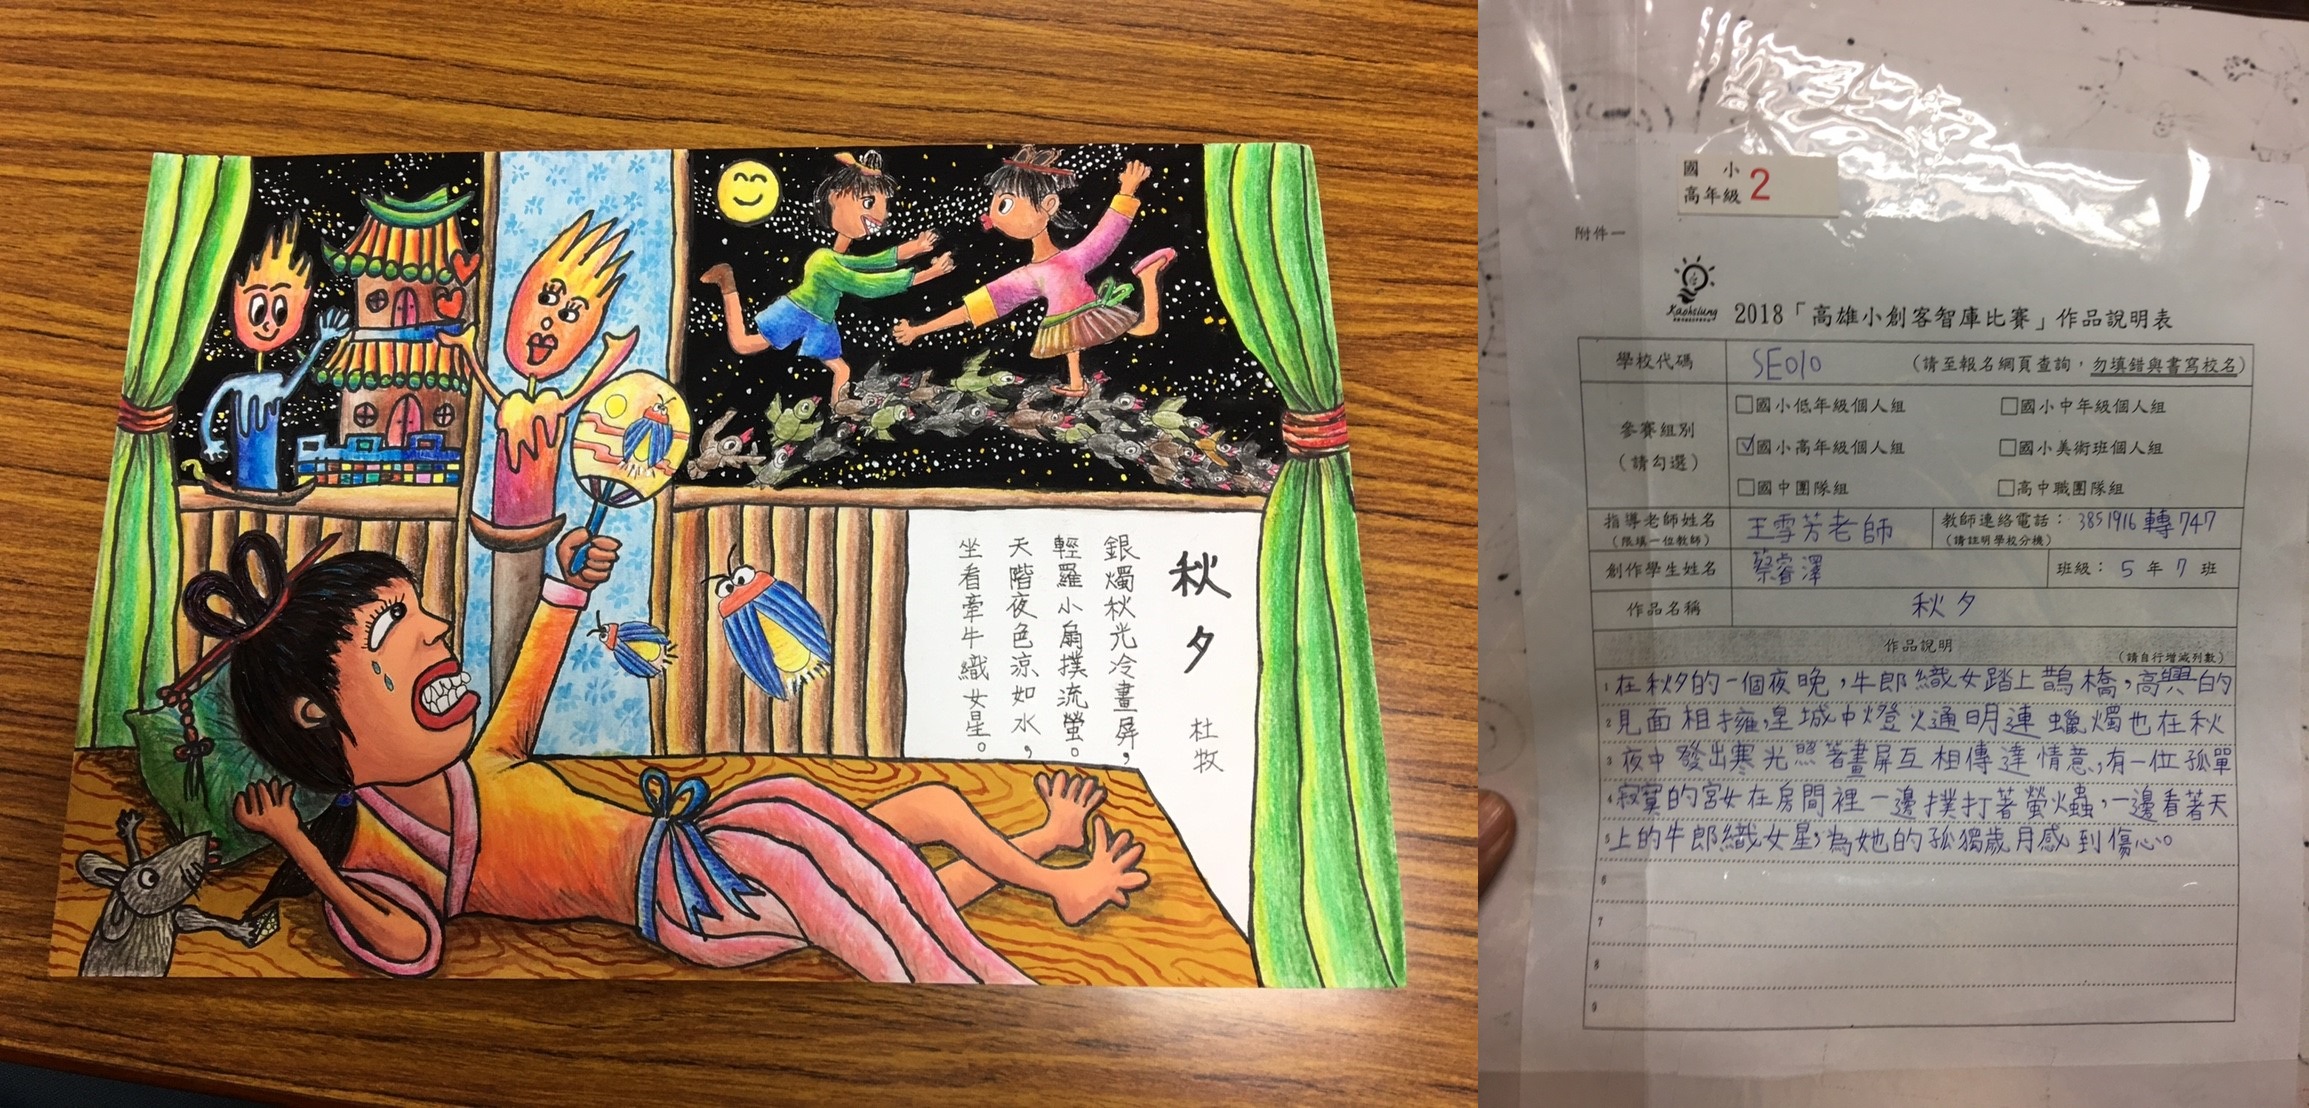 秋夕 杜牧
銀燭秋光冷畫屏，
輕羅小扇撲流螢。
天階夜色涼如水，
坐看牽牛織女星。
國小
高年級 2
附件一
Kaohsiung
2018「高雄小創客智庫比賽」作品說明表
學校代碼 SE010 （請至報名網頁查詢，勿填錯與書寫校名）
參賽組別
（請勾選）
□國小低年級個人組 □國小中年級個人組
☑國小高年級個人組 □國小美術班個人組
□國中團隊組 □高中職團隊組
指導老師姓名 王雪芳老師 教師連絡電話： 3851916轉747
（限填一位教師） （請註明學校分機）
創作學生姓名 蔡睿澤 班級： 5 年 7 班
作品名稱 秋夕
作品說明 （請自行增減列數）
1 在秋夕的一個夜晚，牛郎織女踏上鵲橋，高興的
2 見面相擁，皇城中燈火通明連蠟燭也在秋
3 夜中發出寒光照著畫屏互相傳達情意，有一位孤單
4 寂寞的宮女在房間裡一邊撲打著螢火蟲，一邊看著天
5 上的牛郎織女星，為她的孤獨歲月感到傷心。
6
7
8
9